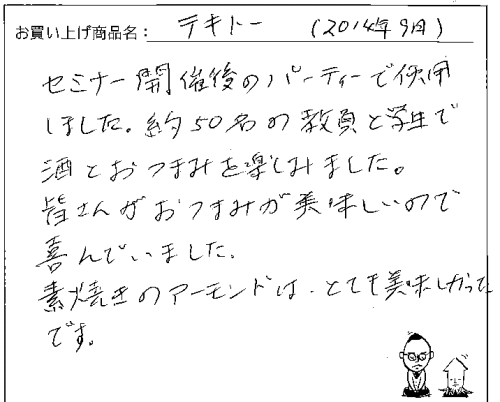 お買い上げ商品名: テキトー (2014年9月)
セミナー開催後のパーティーで使用
しました。約50名の教員と学生で
酒とおつまみを楽しみました。
皆さんがおつまみが美味しいので
喜んでいました。
素焼きのアーモンドは、とても美味しかった
です。